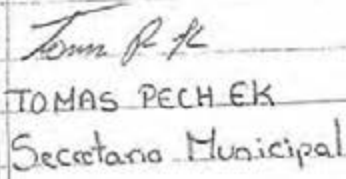 TOMAS PECH EK
Secretario Municipal